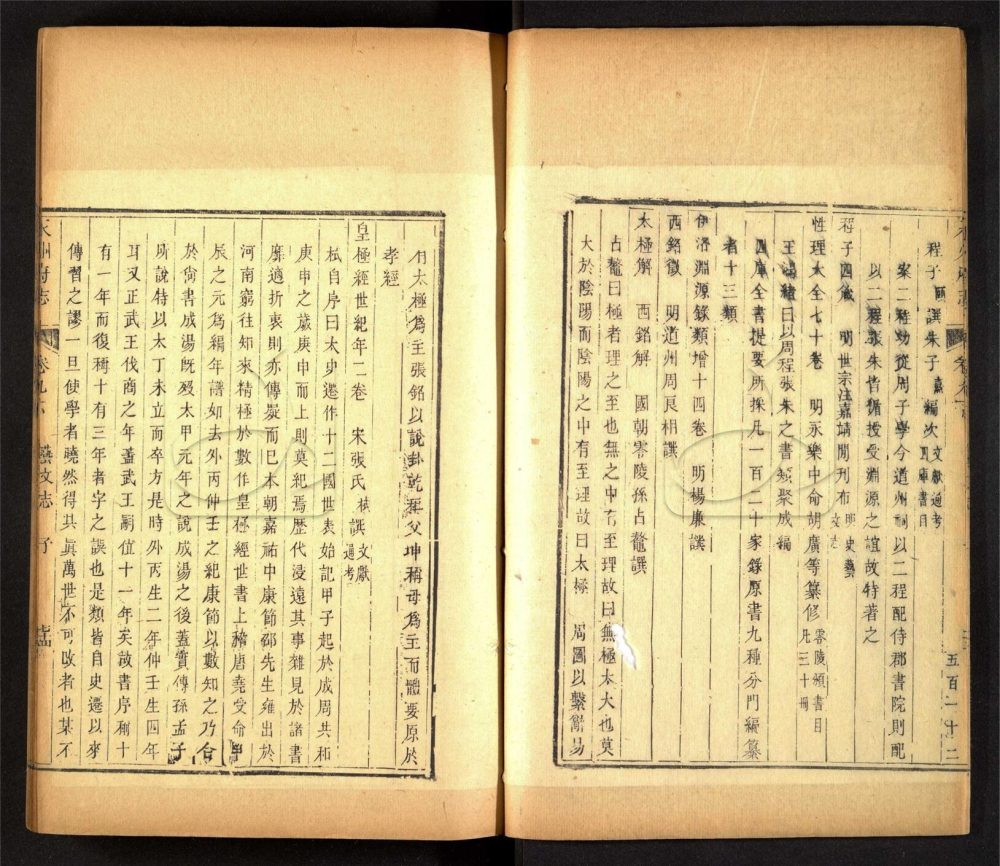 程子頤譔朱子熹編次文獻通考四庫書目
案二程幼從周子學今道州祠以二程配侍郡書院則配
以二程張朱皆循授受淵源之誼故特著之
程子四箴 明世宗注嘉靖閒刊布明史藝文志
性理大全七十卷 明永樂中命胡廣等纂修零陵頒書目凡三十冊
王鴻緒曰以周程張朱之書類聚成編
四庫全書提要所採凡一百二十家錄原書九種分門編纂
者十三類
伊洛淵源錄類增十四卷 明楊廉譔
西銘徵 明道州周良相譔
太極解 西銘解 國朝零陵孫占鼇譔
占鼇曰極者理之至也無之中有至理故曰無極太大也莫
大於陰陽而陰陽之中有至理故曰太極 周圖以繫辭易
有太極爲主張銘以說卦乾稱父坤稱母爲主而體要原於
孝經
皇極經世紀年二卷 宋張氏栻譔文獻通考
栻自序曰太史遷作十二國世表始記甲子起於成周共和
庚申之歲庚申而上則莫紀焉歷代浸遠其事雜見於諸書
靡適折衷則亦傳疑而已本朝嘉祐中康節邵先生雍出於
河南窮往知來精極於數作皇極經世書上稽唐堯受命甲
辰之元爲編年譜如去外丙仲壬之紀康節以數知之乃合
於尙書成湯旣歿太甲元年之說成湯之後蓋實傳孫孟子
所說特以太丁未立而卒方是時外丙生二年仲壬生四年
耳又正武王伐商之年蓋武王嗣位十一年矣故書序稱十
有一年而復稱十有三年者字之誤也是類皆自史遷以來
傳習之謬一旦使學者曉然得其眞萬世不可改者也某不
永州府志 卷九下 藝文志 子
五百一十二